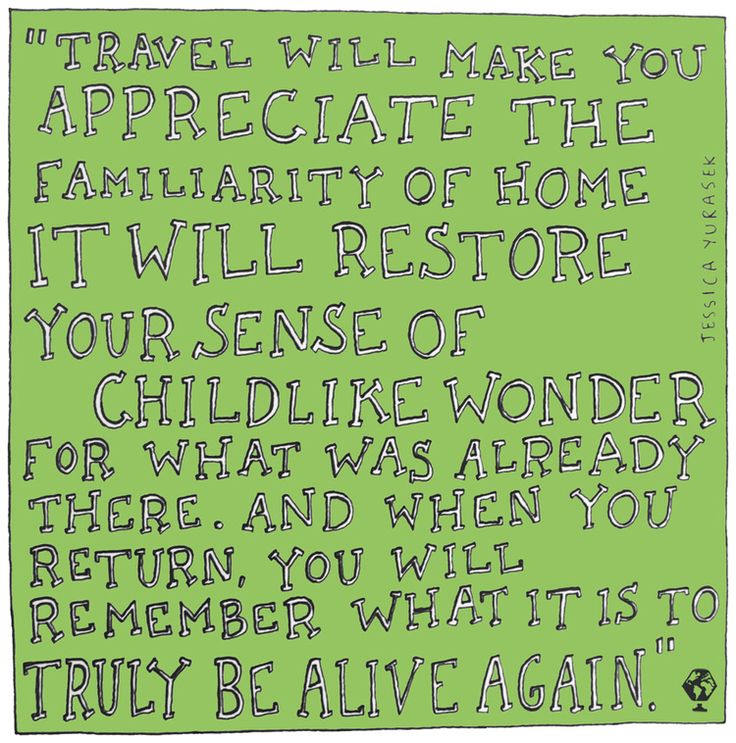 "TRAVEL WILL MAKE YOU
APPRECIATE THE
FAMILIARITY OF HOME
IT WILL RESTORE
YOUR SENSE OF
CHILDLIKE WONDER
FOR WHAT WAS ALREADY
THERE. AND WHEN YOU
RETURN, YOU WILL
REMEMBER WHAT IT IS TO
TRULY BE ALIVE AGAIN."
JESSICA YURASEK